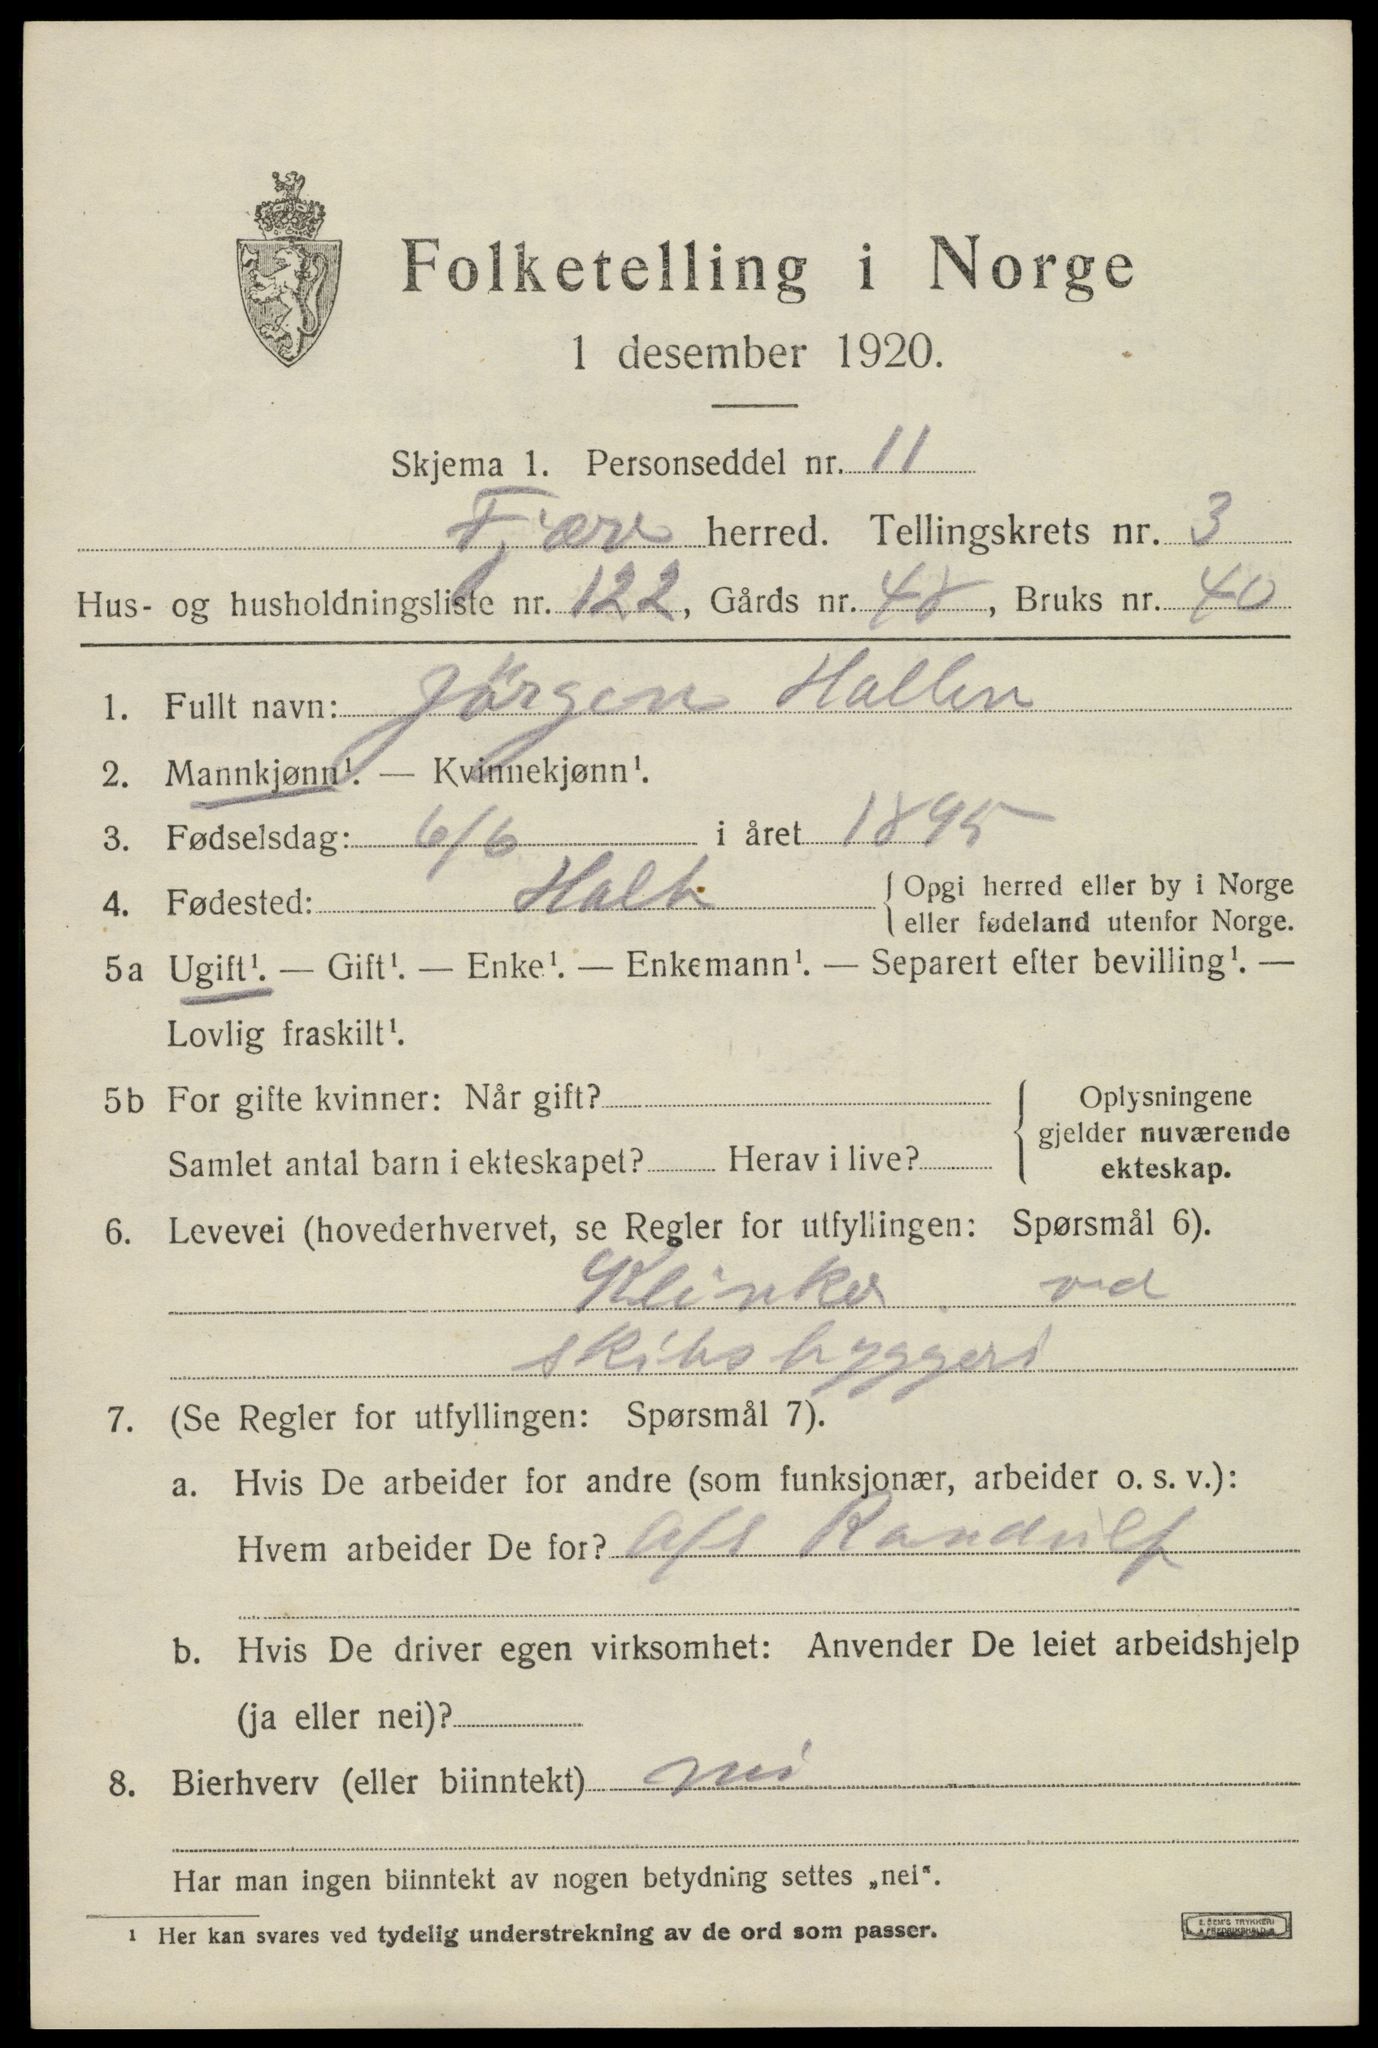 Folketelling i Norge
1 desember 1920.
Skjema 1. Personseddel nr. 11
Fjære herred. Tellingskrets nr. 3
Hus- og husholdningsliste nr. 122, Gårds nr. 48, Bruks nr. 40
1. Fullt navn: Jörgen Hallen
2. Mannkjønn¹. — Kvinnekjønn¹.
3. Fødselsdag: 6/6 i året 1895
4. Fødested: Holt { Opgi herred eller by i Norge
eller fødeland utenfor Norge.
5a Ugift¹. — Gift¹. — Enke¹. — Enkemann¹. — Separert efter bevilling¹. —
Lovlig fraskilt¹.
5b For gifte kvinner: Når gift?
Samlet antal barn i ekteskapet? Herav i live?
Oplysningene
gjelder nuværende
ekteskap.
6. Levevei (hovederhvervet, se Regler for utfyllingen: Spørsmål 6).
Klinker ved
skibsbyggeri
7. (Se Regler for utfyllingen: Spørsmål 7).
a. Hvis De arbeider for andre (som funksjonær, arbeider o. s. v.):
Hvem arbeider De for? A/S Randulf
b. Hvis De driver egen virksomhet: Anvender De leiet arbeidshjelp
(ja eller nei)?
8. Bierhverv (eller biinntekt) nei
Har man ingen biinntekt av nogen betydning settes „nei“.
1 Her kan svares ved tydelig understrekning av de ord som passer.
E. SEM'S TRYKKERI
FREDRIKSHALD